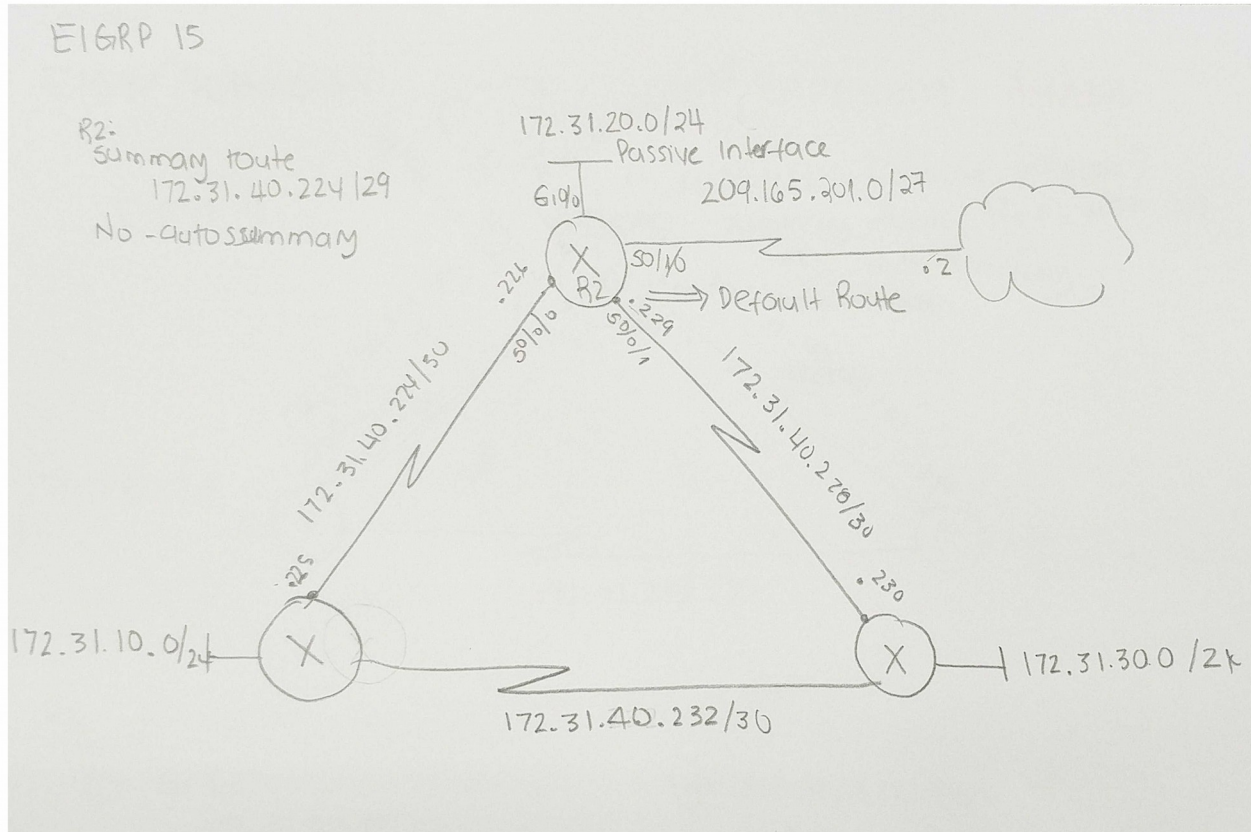 EIGRP 15
R2:
Summary route
172.31.40.224/29
No-autossummary
172.31.20.0/24
Passive Interface
209.165.201.0/27
.2
R2
Default Route
.226
S0/0/0
.229
S0/0/1
172.31.40.224/30
172.31.40.228/30
.225
.230
172.31.10.0/24
X
X
X
172.31.30.0
172.31.40.232/30